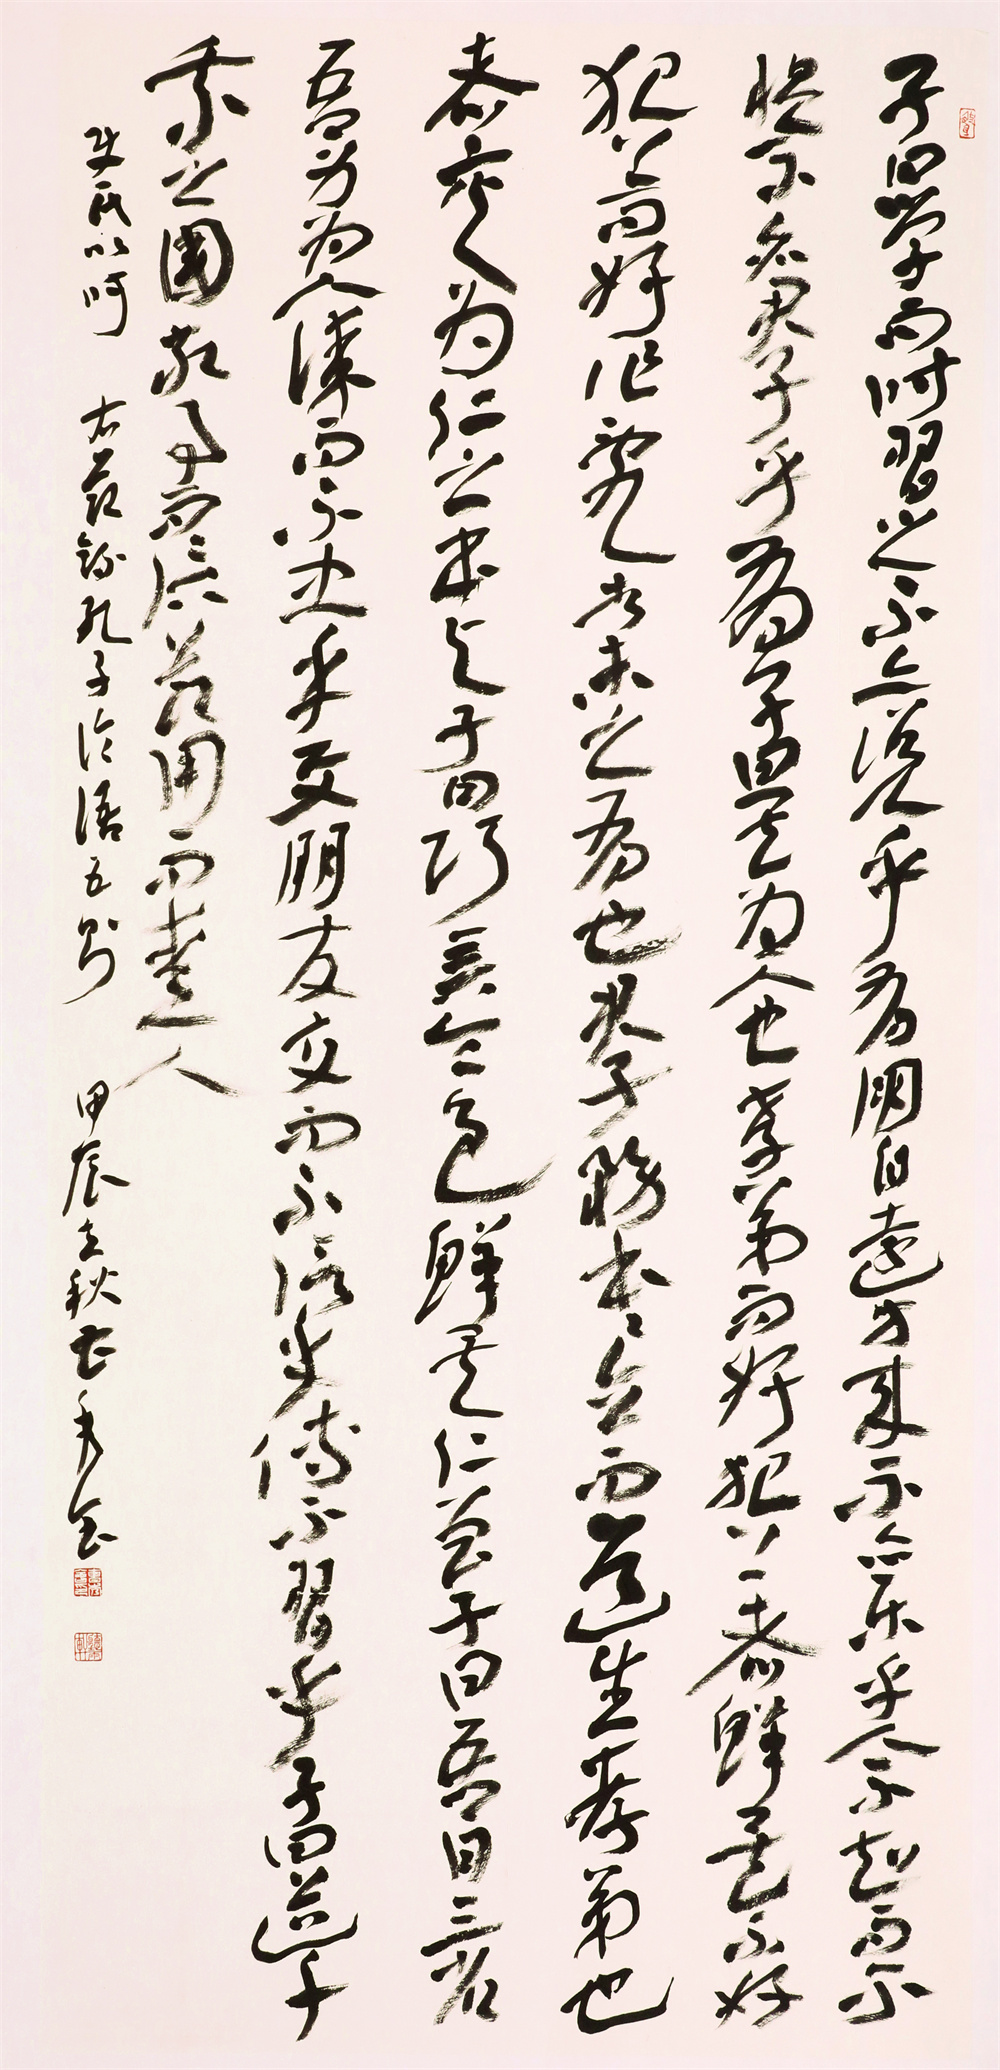 子曰學而時習之不亦说乎有朋自遠方来不亦樂乎人不知而不
愠不亦君子乎有子曰其为人也孝弟而好犯上者鮮矣不好
犯上而好作亂者未之有也君子務本本立而道生孝弟也
者其为仁之本与子曰巧言令色鮮矣仁曾子曰吾日三省
吾身为人謀而不忠乎與朋友交而不信乎傳不習乎子曰道千
乘之國敬事而信節用而愛人
使民以時 右節錄孔子論語五則 甲辰立秋